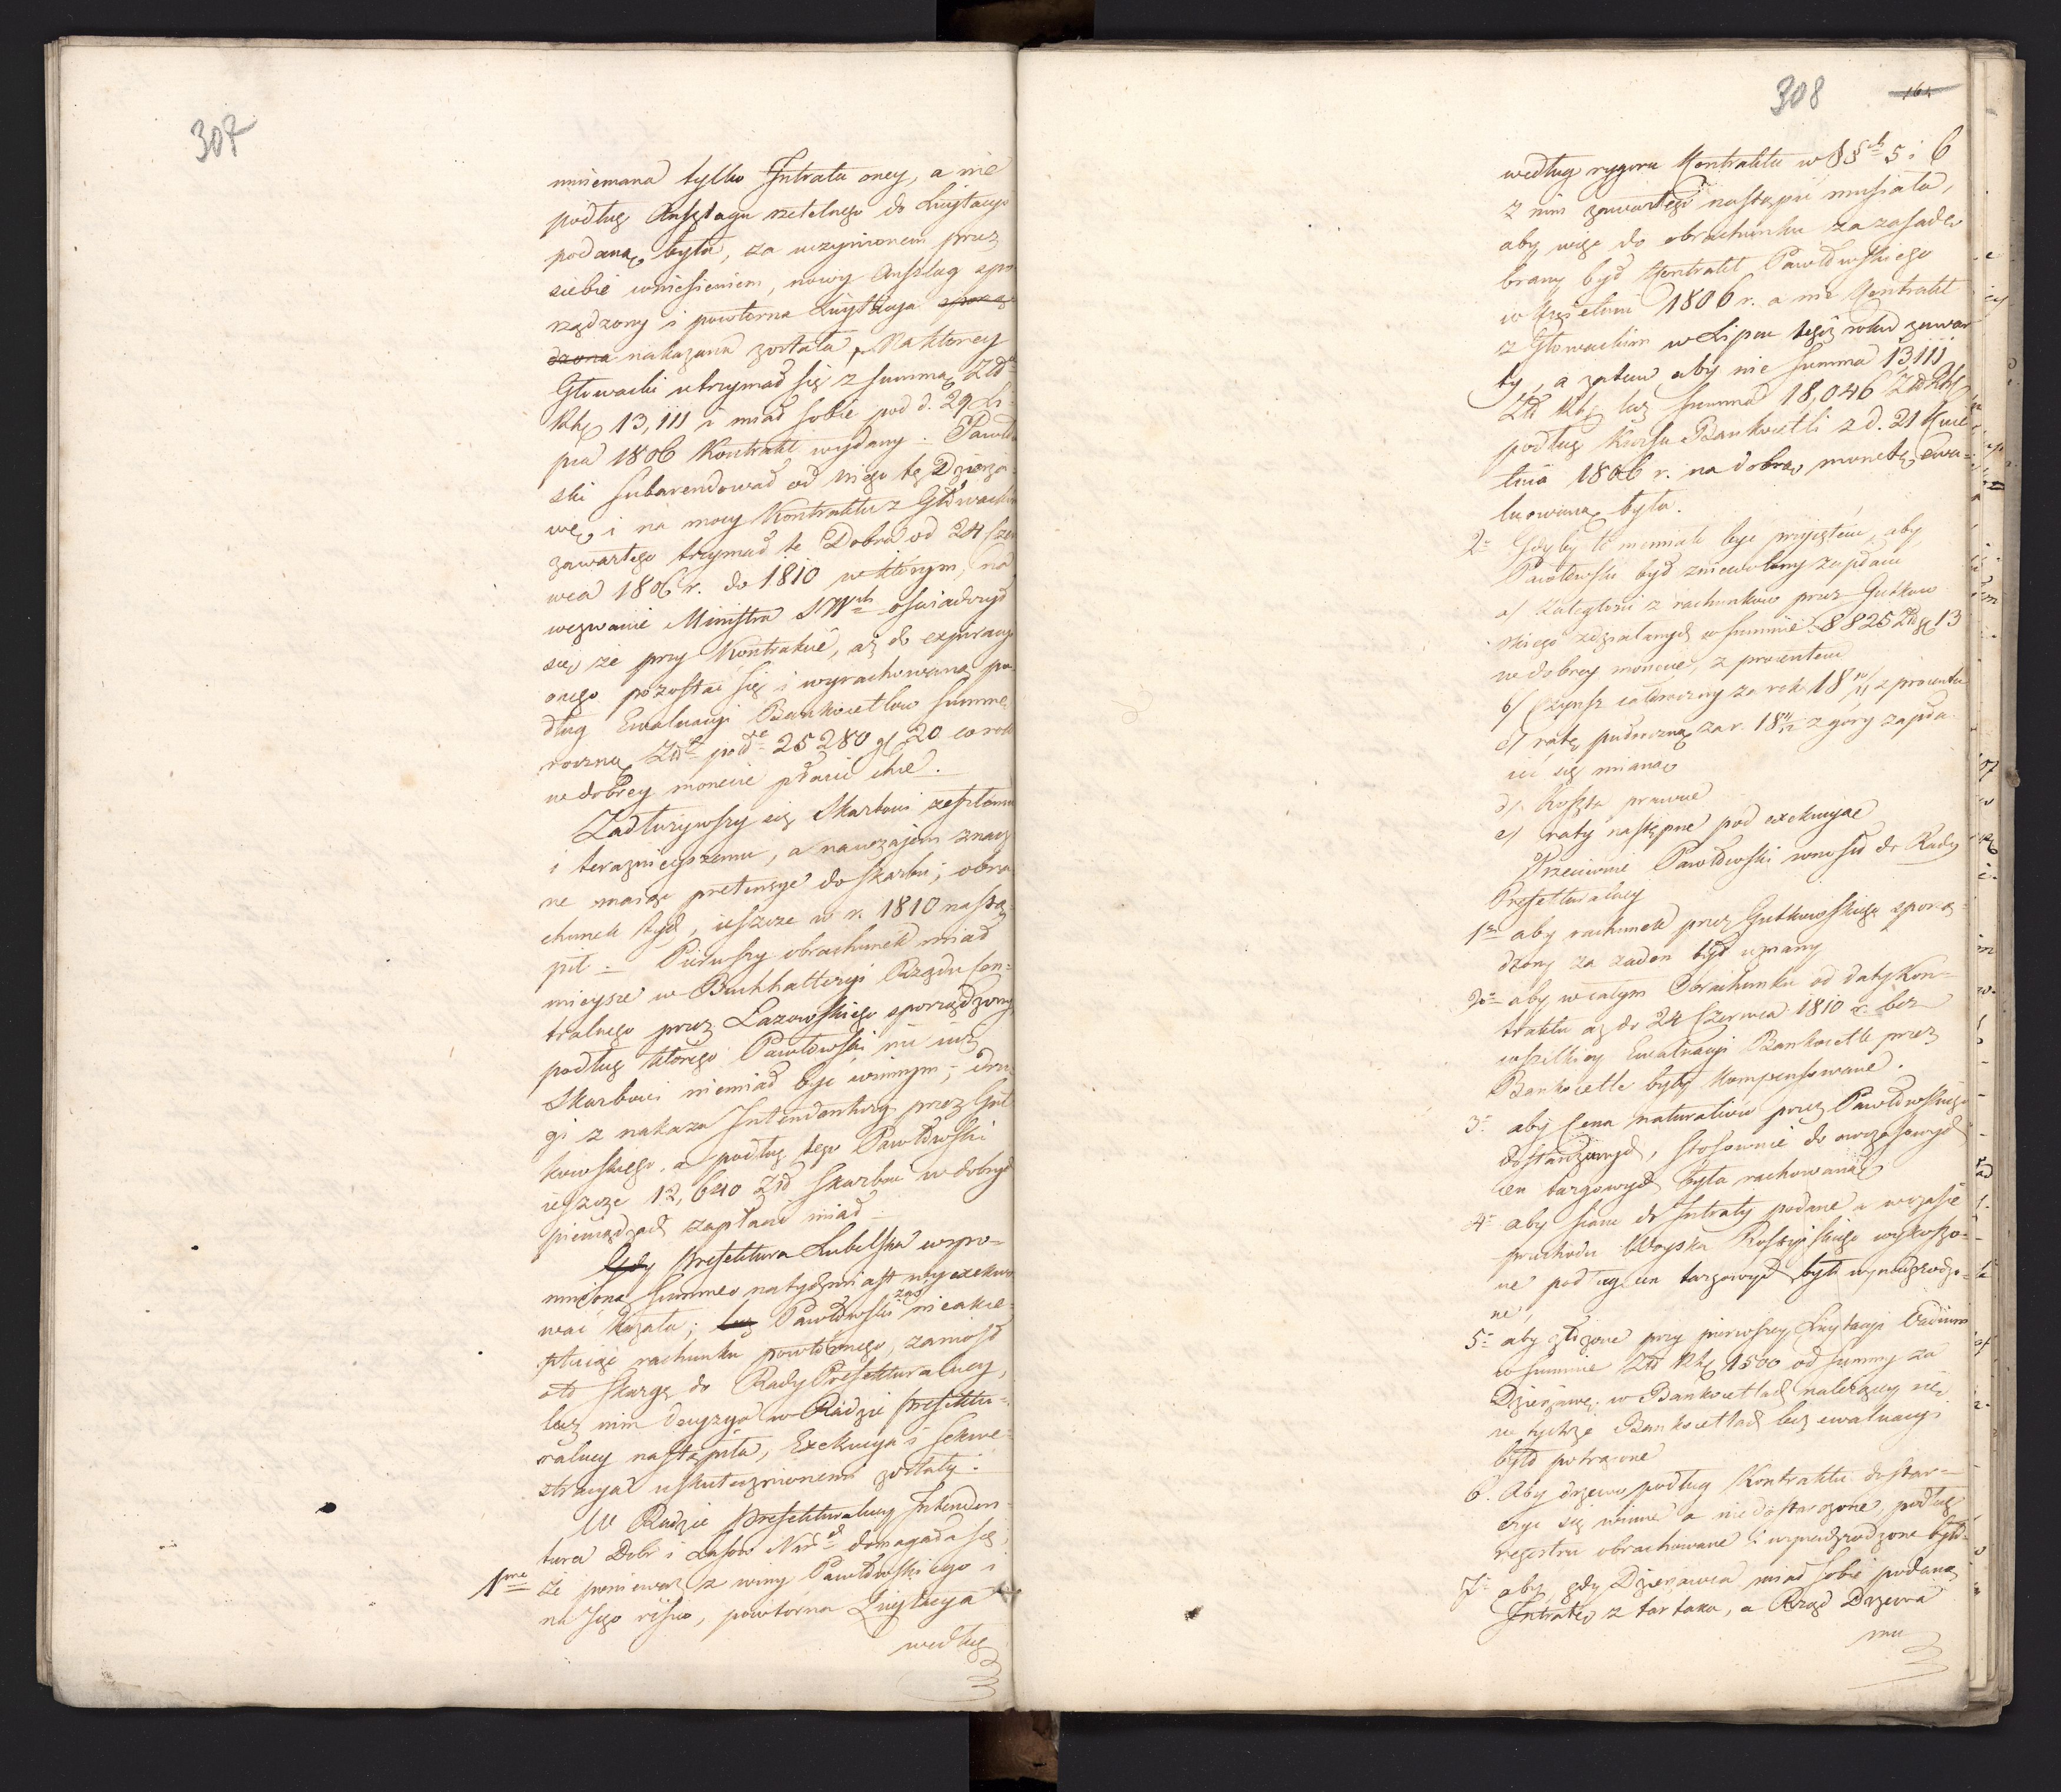 307
mniemana tylko Intrata oney, a nie
podług Anszlagu rzetelnego do Licytacyi
podaną była, za uczynionem przez
siebie wniesieniem, nowy Anszlag spo-
rządzony i powtorna Licytacya sporzą
dzona nakazana została, Na ktorey
Głowacki utrzymał się z summą Złł
Rh 13,111 i miał sobie pod d. 29 Li-
pca 1806 Kontrakt wydany. Pawłow
ski subarendował od niego tę Dzierża-
wę, i na mocy Kontraktu z Głowackim
zawartego trzymał te Dobra od 24 Czer
wca 1806 r. do 1810 w którym, na
wezwanie Ministra SWch oświadczył
się że przy Kontrakcie, aż do expiracyi
onego pozostać się i wyrachowaną po-
dług Ewaluacyi Bankocetlow summę
roczną Złł pol 25280 gl 20 co rok
w dobrey monecie płacić chce.
Zadłużywszy się Skarbowi zeszłemu
i teraznieyszemu, a nawzajem znacz
ne maiąc pretensye do skarbu, obra
chunek tych, ieszcze w r. 1810 nastą-
pił. Pierwszy obrachunek miał
mieysce w Buchhalteryi Rządu Cen-
tralnego przez Lazowskiego sporządzony
podług którego Pawłowski nic iuż
Skarbowi niemiał być winnym; dru
gi z nakazu Intendentury przez Gut
kowskiego, a podług tego Pawłowski
ieszcze 12,640 Złł Skarbowi w dobrych
pieniądzach zapłacić miał.
Gdy Prefektura Lubelska wspo-
mnioną summę natychmiast wyexekwo
wać kazała; lecz Pawłowski zaś nieakce-
ptuiąc rachunku powtórnego, zaniósł
oto skargę do Rady Prefekturalney,
lecz nim decyzya w Radzie Prefektu-
ralney nastąpiła, Exekucya i sekwe-
stracya uskutecznionemi zostały.
W Radzie Prefekturalney Intenden-
tura Dobr i Lasów Nardch domagała się,
1me że ponieważ z winy Pawłowskiego i
na Jego risico, powtórna Licytacya
według
308
164
według rygoru Kontraktu w §§ch 5 i 6
z nim zawartego nastąpić musiała,
aby więc do obrachunku za zasadę
brany był Kontrakt Pawłowskiego
w Kwietniu 1806 r. a nie Kontrakt
z Głowackim w Lipcu tegoż roku zawar
ty, a zatem aby nie summa 13,111
Złł Rh lecz summa 18,046 Złł Rh
podług Kursu Bankocetli z d. 21 Kwie
tnia 1806 r. na dobrą monetę ewa-
luowana była.
2- Gdyby to niemiało być przyiętem, aby
Pawłowski był zniewolony zapłacić
a/ Zaległości z rachunków przez Gutkow
skiego zdziałanych w summie 8825 Złł gl 13
w dobrey monecie, z procentem
b/ Czynsz całoroczny za rok 18 10/11 z procentem
c/ ratę pułroczną za r. 18 11/12 z góry zapła-
cić się mianą
d/ Koszta prawne
e/ raty następne pod exekucyą
Przeciwnie Pawłowski wnosił do Rady
Prefekturalney
1o aby rachunek przez Gutkowskiego sporzą-
dzony za żaden był uznany
2o aby w całym Obrachunku od daty Kon-
traktu aż do 24 Czerwca 1810 r. bez
wszelkiey Ewaluacyi Bankocetle przez
Bankocetle były kompensowane.
3- aby Cena naturaliów przez Pawłowskiego
dostarczonych, stosownie do owczasowych
cen targowych była rachowana
4- aby siano do Intraty podane a w czasie
przechodu Woyska Rossyiskiego wykoszo-
ne podług cen targowych było wynadgrodzo-
ne,
5- aby złożone przy pierwszey Licytacyi Vadium
w summie Złł Rh 1500 od summy za
Dzierżawę w Bankocetlach należącey się
w tychże Bankocetlach bez ewaluacyi
było potrącone
6. Aby drzewo podług Kontraktu dostar-
czyć się winne a niedostarczone, podług
regestru obrachowane i wynadgrodzone było
7- aby gdy Dzierżawca miał sobie podaną
Intratę z tartaka, a Rząd Drzewa
mu